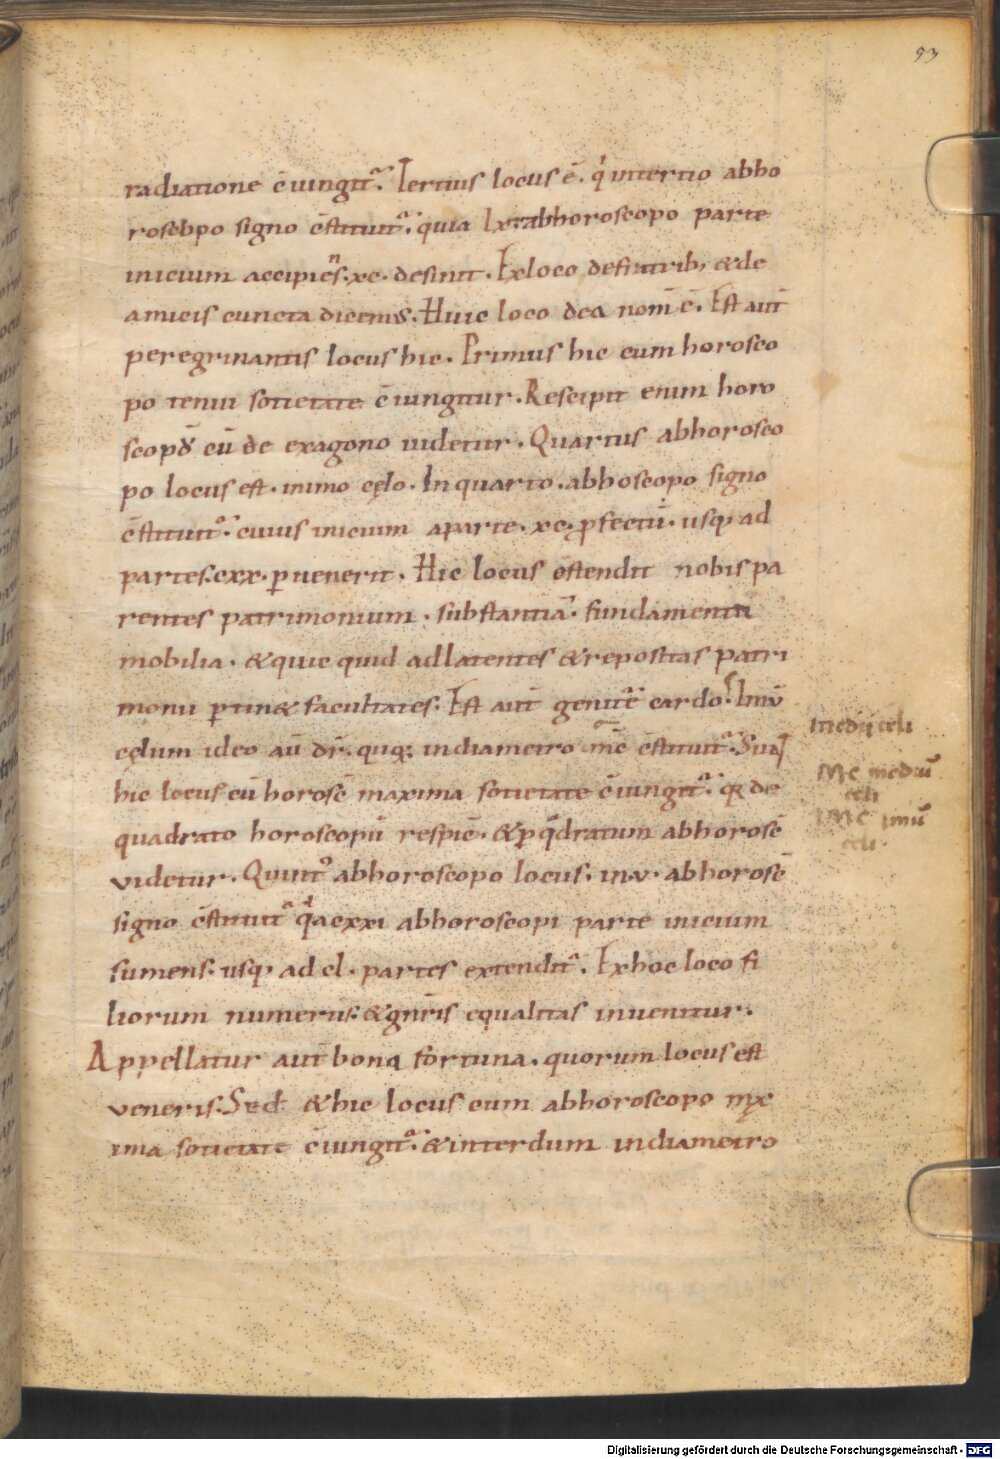 53
radiatione c̄iungit᷑. Tertius locus ē. q' in tertio abho
roscopo signo c̄stituit᷑. quia lx. abhoroscopo parte
inicium accipiēs. xc. desinit. Ex loco de fratrib; & de
amicis cuncta dicemus. Huic loco dea nom̄ ē. Est aut̄
peregrinantis locus hic. Primus hic cum horosco
po tenui societate c̄iungitur. Rescipit enim horo
scopū eū de exagono uidetur. Quartus abhorosco
po locus est. in imo cęlo. In quarto. abhoscopo signo
c̄stituit᷑. cuius inicium a parte. xc. ꝓfectū. usq; ad
partes. cxx. ꝑuenerit. Hic locus ostendit nobis pa
rentes patrimonium. substantiā. fundamenta
mobilia. & quic quid ad latentes & repositas patri
monii ꝑtin& facultates. Est aut̄ geniturę cardo. Imū
cęlum ideo aū dr̄. quq; in diametro m̄c c̄stituit᷑. Sin
hic locus cū horosc̄ maxima societate c̄iungit᷑. q; de
quadrato horoscopū respic̄. & ꝑ q̄dratum abhorosc̄
videtur. Quint' abhoroscopo locus. in v. abhorosc̄
signo c̄stituit᷑ q'a cxxi abhoroscopi parte inicium
sumens. usq; ad cl. partes extendit᷑. Ex hoc loco fi
liorum numerus. & gn̄ris equalitas inuenitur.
Appellatur aut̄ bona fortuna. quorum locus est
veneris. Sed & hic locus cum abhoroscopo mx
ima societate c̄iungit᷑. & interdum in diametro
medii celi
MC mediū
celi
IMC imū
celi
Digitalisierung gefördert durch die Deutsche Forschungsgemeinschaft - DFG